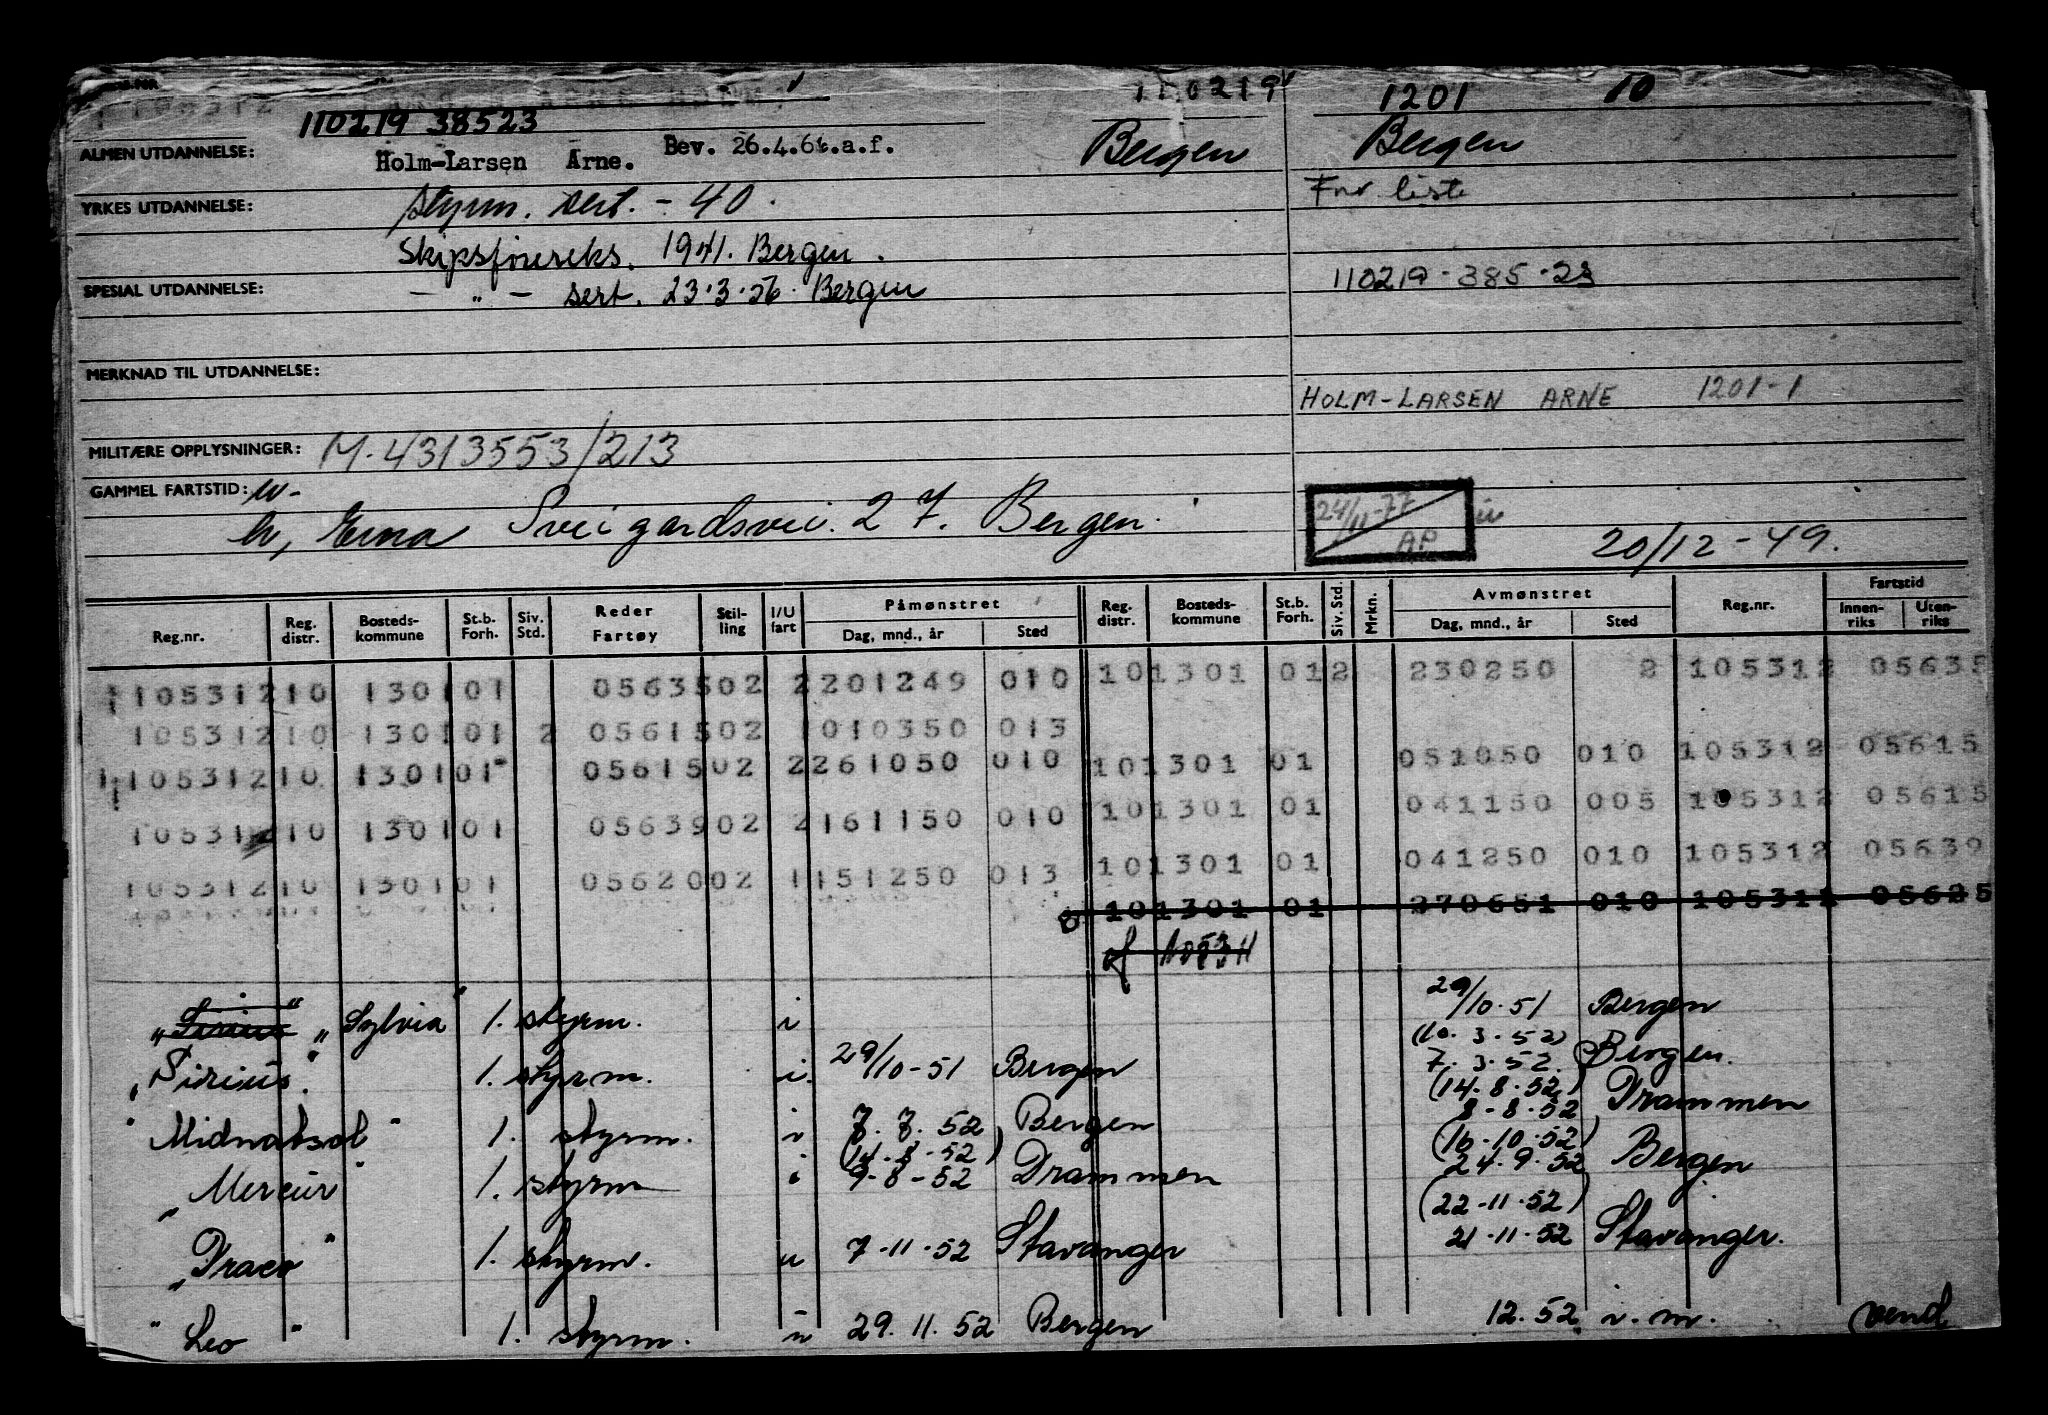 110219 1201 10
110219 38523
ALMEN UTDANNELSE: Holm-Larsen Arne. Bev. 26.4.66.a.f. Bergen Bergen
YRKES UTDANNELSE: styrm. sert. - 40. Fnr liste
Skipsførereks. 1941. Bergen.
SPESIAL UTDANNELSE: — " — sert. 23.3.56. Bergen 110219-385-23
MERKNAD TIL UTDANNELSE:
HOLM-LARSEN ARNE 1201-1
MILITÆRE OPPLYSNINGER: M.4313553/213
GAMMEL FARTSTID:
h, Erna Sveigardsvei. 27. Bergen. 24/11-77 AP 20/12-49.
Reg.nr. Reg. distr. Bosteds- kommune St.b. Forh. Siv. Std. Reder Fartøy Stil- ling I/U fart Påmønstret Dag, mnd., år Sted Reg. distr. Bosteds- kommune St.b. Forh. Siv. Std. Mrkn. Avmønstret Dag, mnd., år Sted Reg.nr. Fartstid Innen- riks Uten- riks
105312 10 1301 01 05635 02 2 201249 010 10 1301 01 2 230250 2 105312 05635
105312 10 1301 01 2 05615 02 010350 013
105312 10 1301 01 05615 02 2 261050 010 10 1301 01 051050 010 105312 05615
10 1301 01 041150 005 105312 05615
105312 10 1301 01 05639 02 2 161150 010
10 1301 01 041250 010 105312 05639
105312 10 1301 01 05620 02 1 151250 013
10 1301 01 270651 010 10531
"Sirius" "Sylvia" 1. styrm. i 29/10.51 Bergen
"Sirius." 1. styrm. i. 29/10-51 Bergen (10.3.52) 7.3.52. Bergen.
"Midnatsol" 1. styrm. i 7.7.52 Bergen (14.8.52) 8-8-52 Drammen
"Mercur" 1. styrm i (14.8.52) 9-8-52 Drammen (16-10.52) 24.9.52 Bergen
"Draco" 1. styrm. u 7-11-52 Stavanger (22-11-52) 21-11-52 Stavanger.
"Leo" 1. styrm. u 29.11.52 Bergen 12.52 i.m. vend